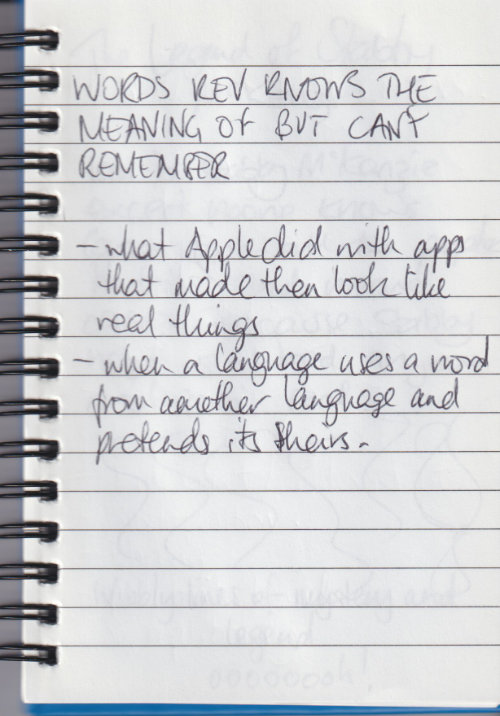 WORDS KEV KNOWS THE
MEANING OF BUT CAN'T
REMEMBER
- what Apple did with apps
that made then look like
real things
- when a language uses a word
from another language and
pretends its theirs.